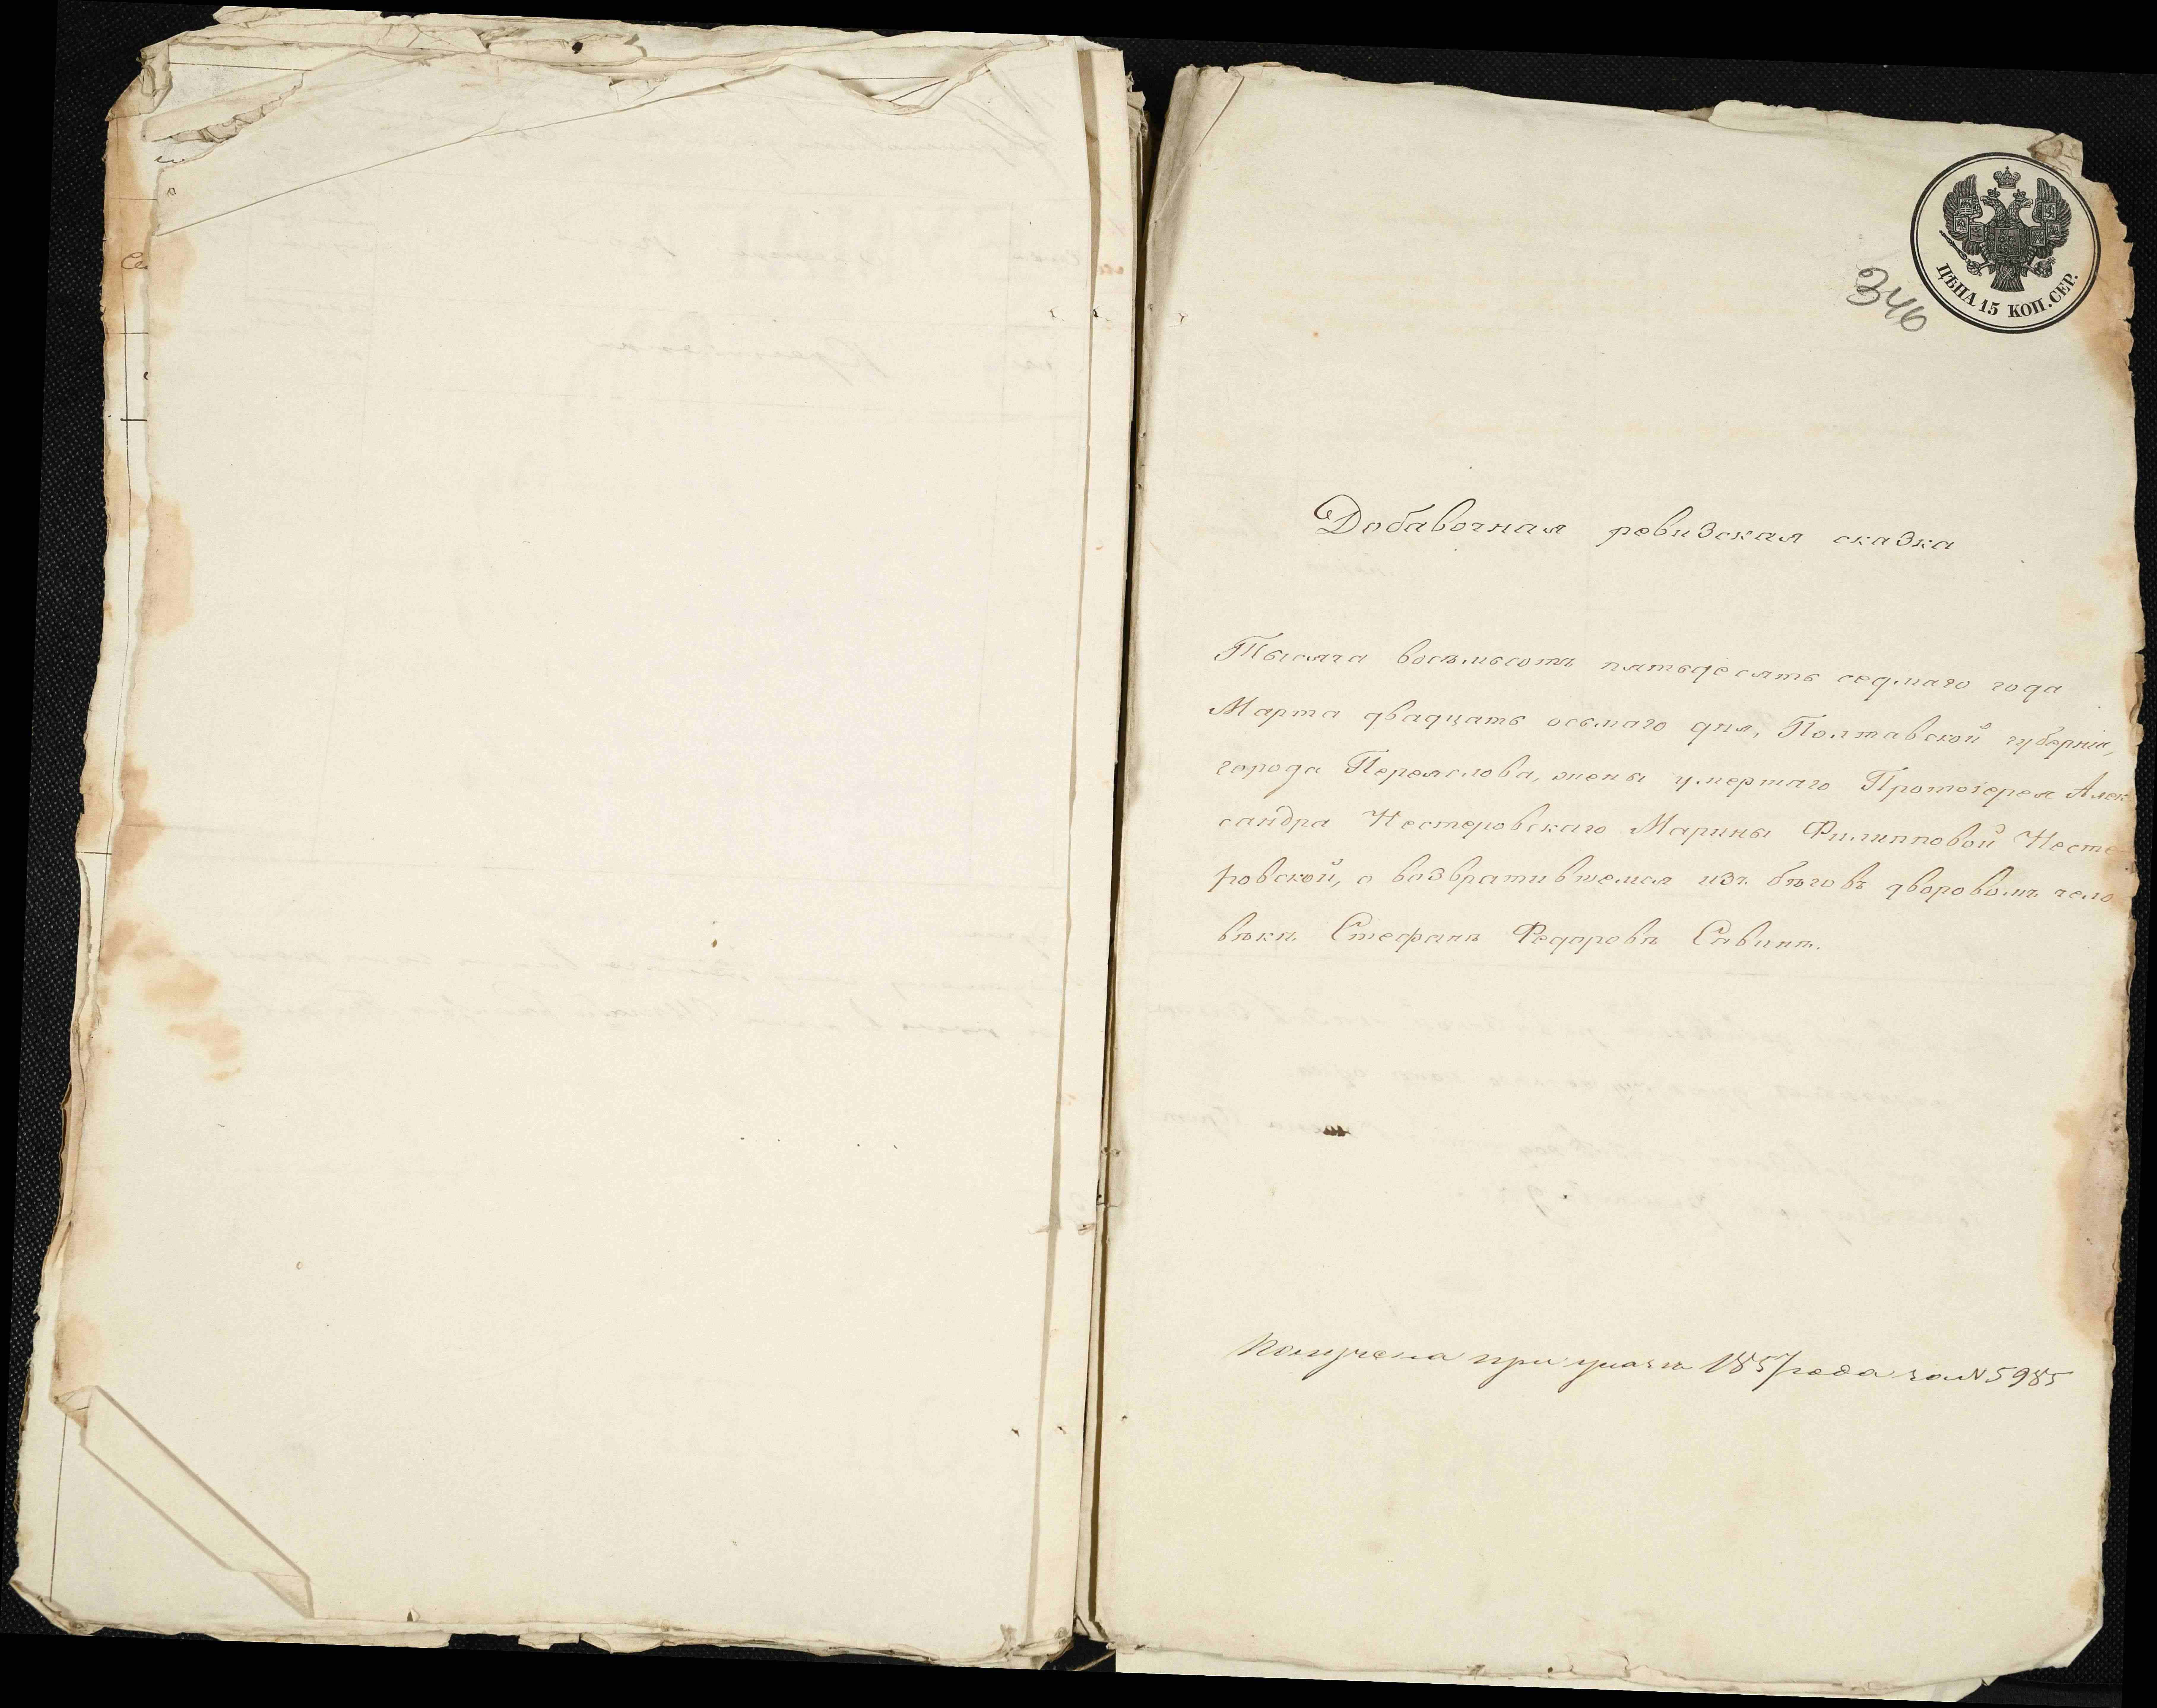 346
ЦѢНА 15 КОП. СЕР.
Добавочная ревизская сказка
Тысяча восѣмьсотъ пятьдесятъ седмаго года
Марта двадцать осьмаго дня, Полтавской губерніи,
города Переяслова, жены умершаго Протоіерея Алек
сандра Нестеровскаго Марины Филипповой Несте
ровской, о возвратившемся изъ бѣговъ дворовомъ чело
вѣкѣ Стефанѣ Федоровѣ Савинѣ.
Получена при указѣ 1857 года за № 5985